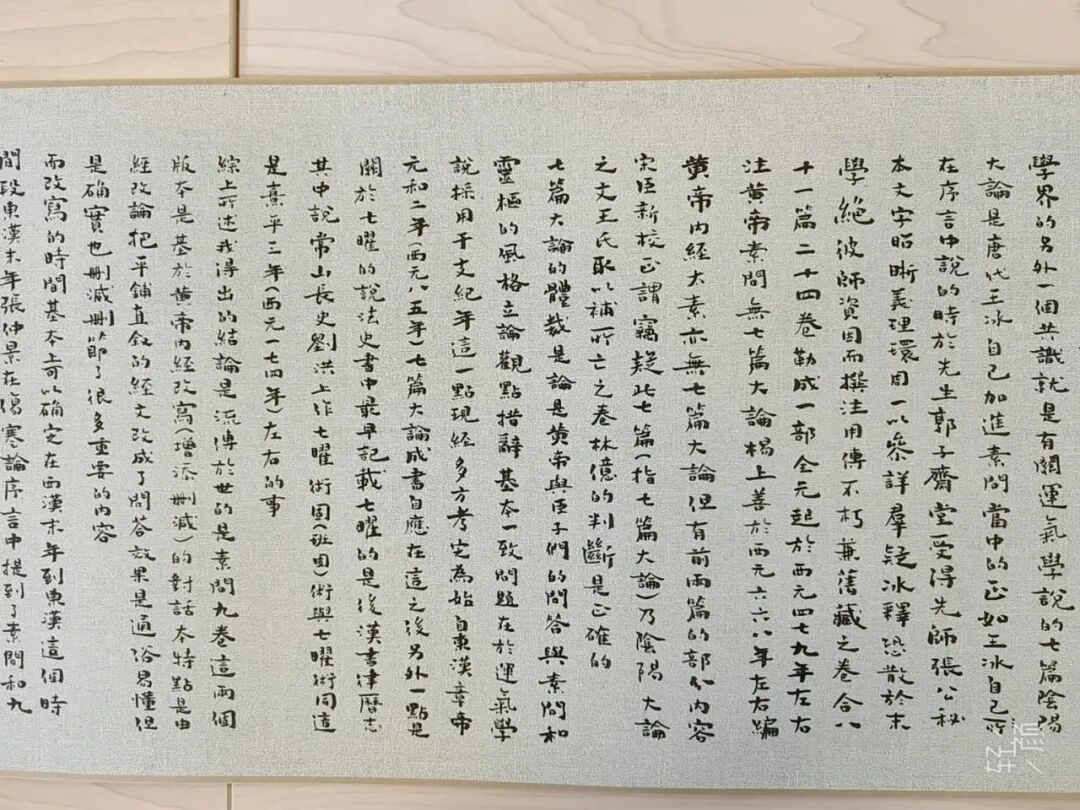 學界的另外一個共識就是有關運氣學說的七篇陰陽
大論是唐代王冰自己加進素問當中的正如王冰自己所
在序言中說的時於先生郭子齋堂受得先師張公秘
本文字昭晰義理環周一以參詳羣疑冰釋恐散於末
學絕彼師資因而撰注用傳不朽兼舊藏之卷合八
十一篇二十四卷勒成一部全元起於西元四七九年左右
注黄帝素問無七篇大論楊上善於西元六六八年左右編
黄帝内經太素亦無七篇大論但有前兩篇的部分内容
宋臣新校正謂竊疑此七篇(指七篇大論)乃陰陽大論
之文王氏取以補所亡之卷林億的判斷是正確的
七篇大論的體裁是論是黄帝與臣子們的問答與素問和
靈樞的風格立論觀點措辭基本一致問題在於運氣學
說採用干支紀年這一點現經多方考定為始自東漢章帝
元和二年(西元八五年)七篇大論成書自應在這之後另外一點是
關於七曜的說法史書中最早記載七曜的是後漢書律曆志
其中說常山長史劉洪上作七曜術固(班固)術與七曜術同這
是熹平三年(西元一七四年)左右的事
綜上所述我得出的結論是流傳於世的是素問九卷這兩個
版本是基於黄帝内經改寫(增添刪減)的對話本特點是由
經改論把平鋪直敘的經文改成了問答效果是通俗易懂但
是确實也刪減刪節了很多重要的内容
而改寫的時間基本上可以确定在西漢末年到東漢這個時
間段東漢末年張仲景在傷寒論序言中提到了素問和九
轻颜